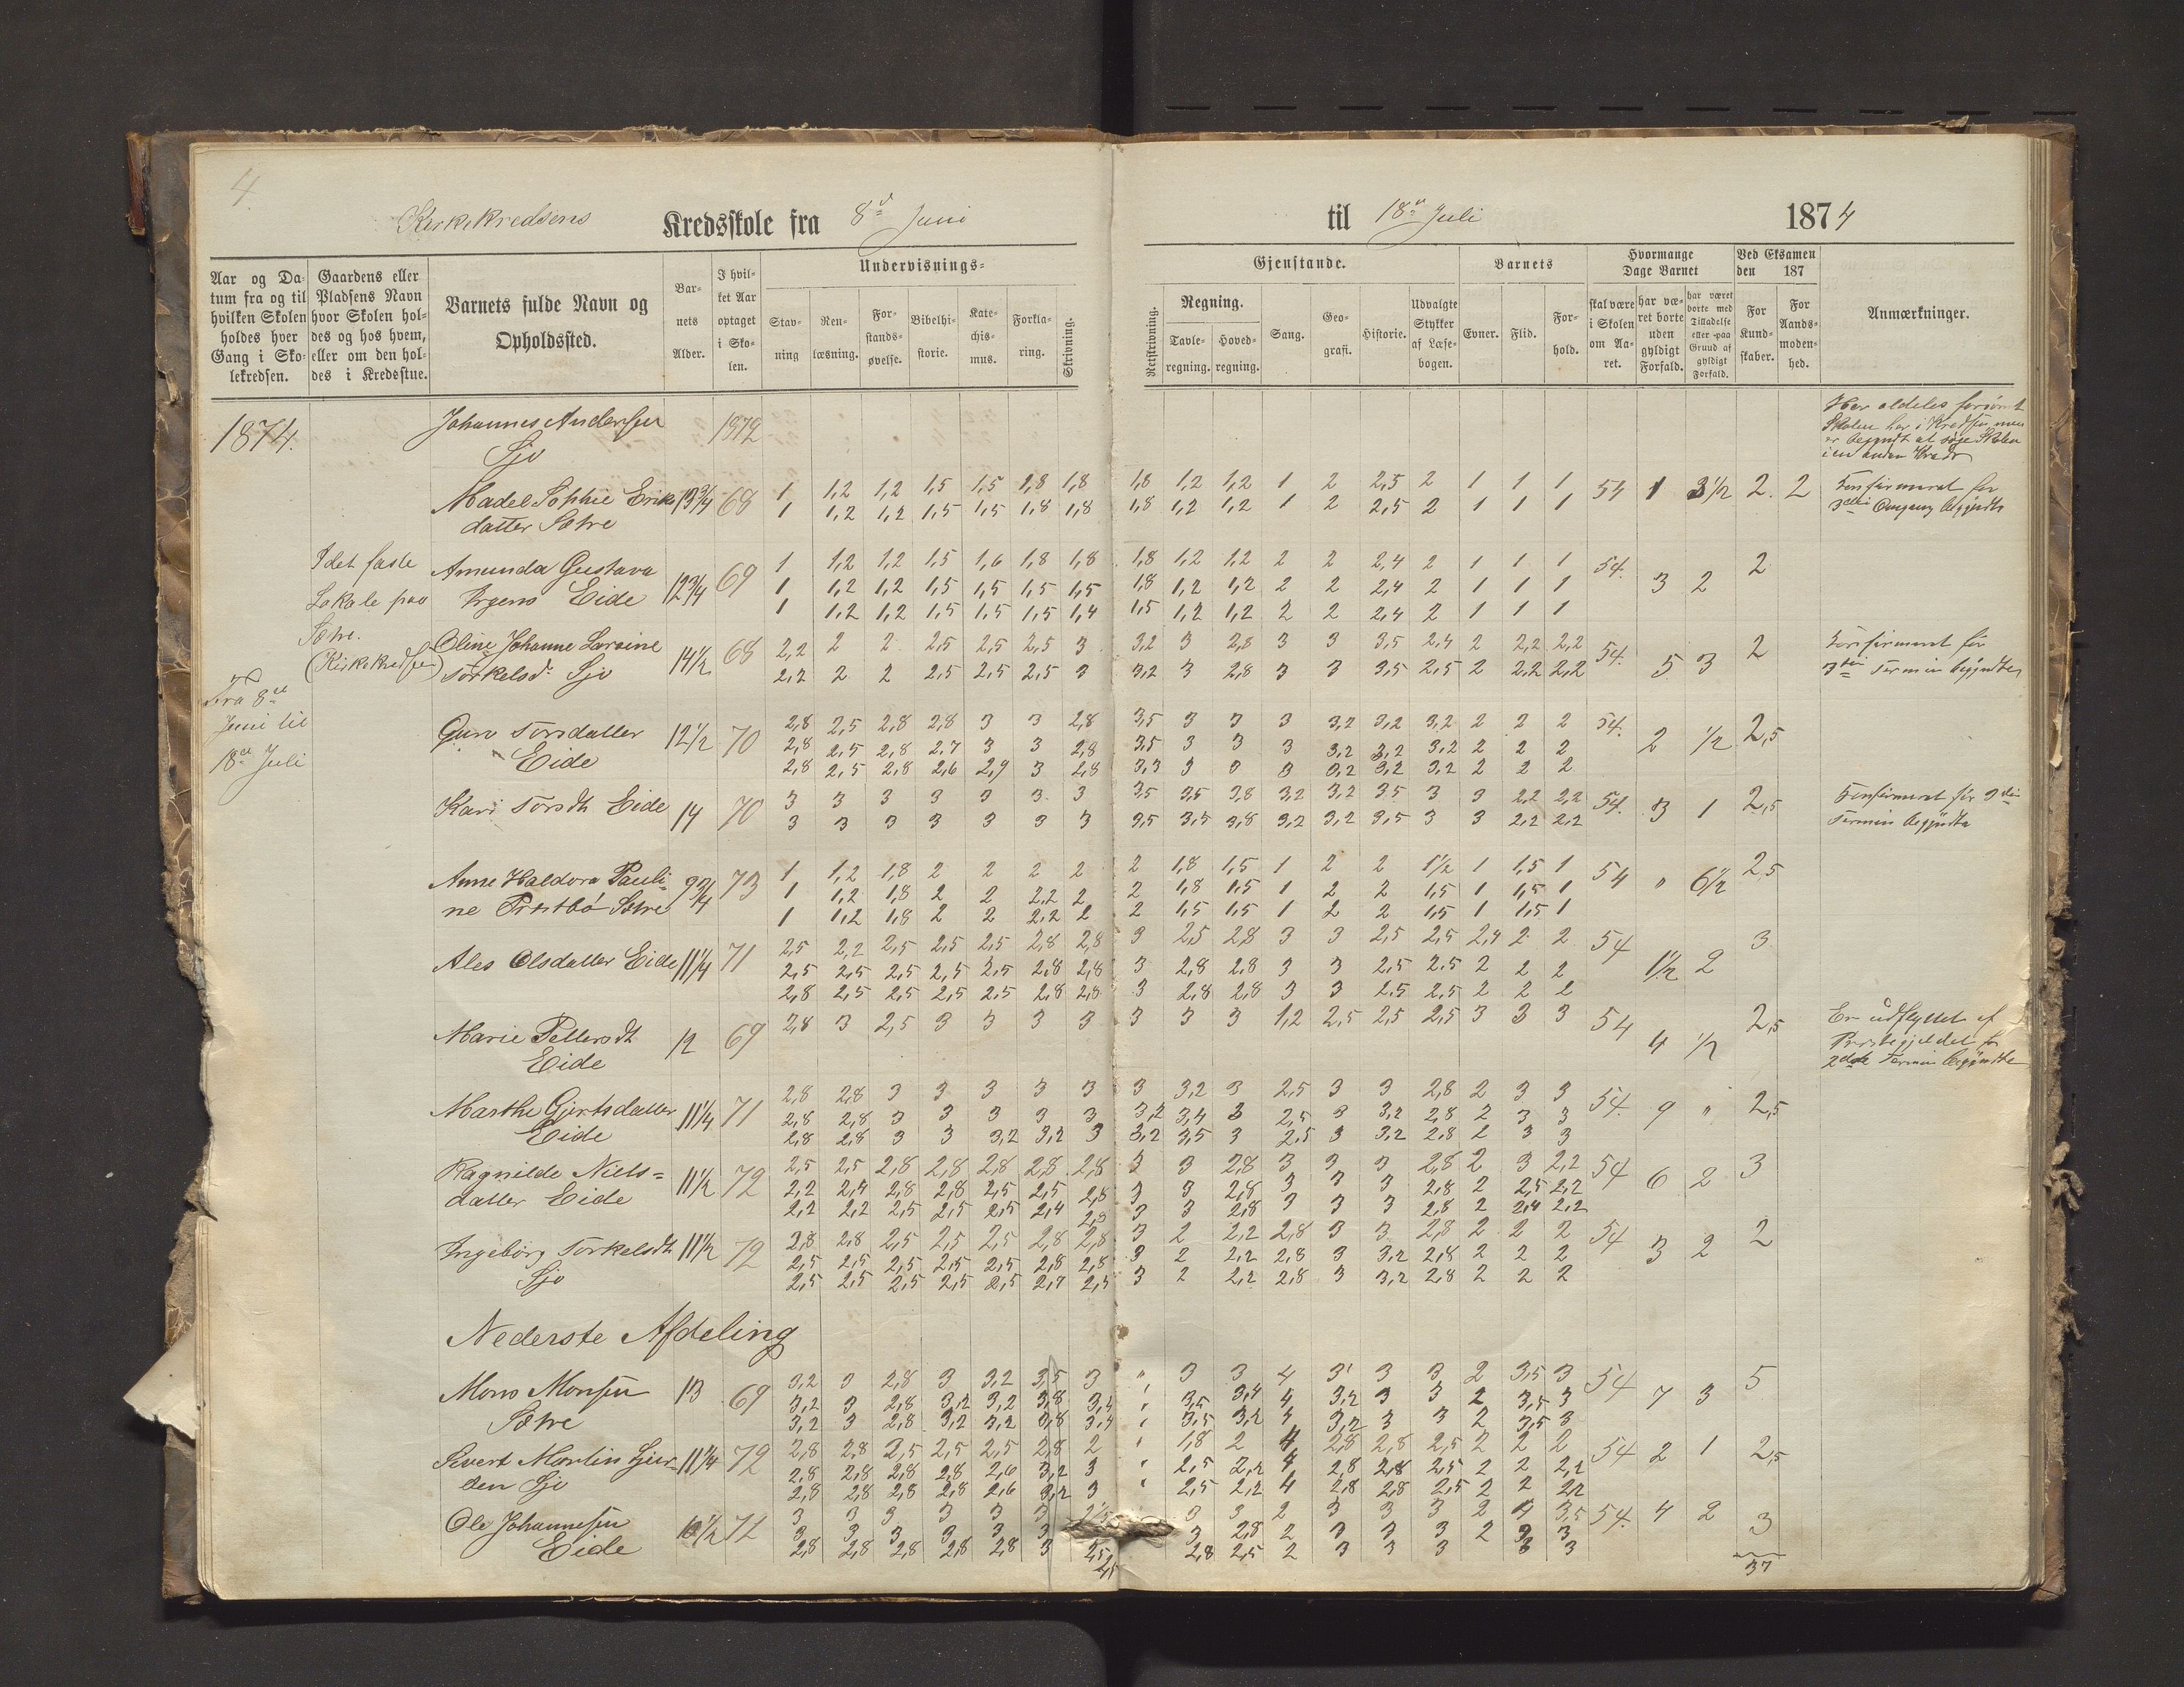 4.
Kirkekredsens Kredsskole fra 8de Juni til 18de Juli 1874
Aar og Datum fra og til hvilken Skolen holdes hver Gang i Skolekredsen.
Gaardens eller Pladsens Navn hvor Skolen holdes og hos hvem, eller om den holdes i Kredsstue.
Barnets fulde Navn og Opholdssted.
Barnets Alder.
I hvilket Aar optaget i Skolen.
Undervisnings-
Stavning
Renlæsning.
Forstandsøvelse.
Bibelhistorie.
Katechismus.
Forklaring.
Skrivning.
Gjenstande.
Retskrivning.
Regning.
Tavleregning.
Hovedregning.
Sang.
Geografi.
Historie.
Udvalgte Stykker af Læsebogen.
Barnets
Evner.
Flid.
Forhold.
Hvormange Dage Barnet
skal være i Skolen om Aaret.
har været borte uden gyldigt Forfald.
har været borte med Tilladelse eller paa Grund af gyldigt Forfald.
Ved Eksamen den 187
For Kundskaber.
For Aandsmodenhed.
Anmærkninger.
1874.
I det faste
Lokale paa
Sætre.
(Kirkekredsen)
Fra 8de
Juni til
18de Juli
Johannes Andersen 1872
Sjo
Har aldeles forsømt
Skolen her i Kredsen men
er begyndt at søge Skolen
i en anden Kreds
Madel Sophie Eriks 13 3/4 68 1 1,2 1,2 1,5 1,5 1,8 1,8 1,8 1,2 1,2 1 2 2,5 2 1 1 1 54 1 3 1/2 2. 2
datter Sætre 1 1,2 1,2 1,5 1,5 1,8 1,8 1,8 1,2 1,2 1 2 2,5 2 1 1 1
Konfirmeret før
3die Omgang begyndte
Amunda Gustava 12 3/4 69 1 1,2 1,2 1,5 1,6 1,8 1,8 1,8 1,2 1,2 2 2 2,4 2 1 1 1 54. 3 2 2
Irgens Eide 1 1,2 1,2 1,5 1,5 1,5 1,5 1,8 1,2 1,2 2 2 2,4 2 1 1 1
1 1,2 1,2 1,5 1,5 1,5 1,4 1,5 1,2 1,2 2 2 2,4 2 1 1 1
Oline Johanne Lavine 14 1/2 68 2,2 2 2 2,5 2,5 2,5 3 3,2 3 2,8 3 3 3,5 2,4 2 2,2 2,2 54. 5 3 2
Torkelsd. Sjo 2,2 2 2 2,5 2,5 2,5 3 3,2 3 2,8 3 3 3,5 2,5 2 2,2 2,2
Konfirmeret før
3die Termin begyndte
Guro Torsdatter 12 1/2 70 2,8 2,5 2,8 2,8 3 3 2,8 3,5 3 3 3 3,2 3,2 3,2 2 2 2 54. 2 1/2 2,5
Eide 2,8 2,5 2,8 2,7 3 3 2,8 3,5 3 3 3 3,2 3,2 3,2 2 2 2
2,8 2,5 2,8 2,6 2,9 3 2,8 3,3 3 3 3 3,2 3,2 3,2 2 2 2
Kari Torsdt Eide 14 70 3 3 3 3 3 3 3 3,5 3,5 3,8 3,2 3,2 3,5 3 3 2,2 2,2 54. 3 1 2,5
3 3 3 3 3 3 3 3,5 3,5 3,8 3,2 3,2 3,5 3 3 2,2 2,2
Konfirmeret før 3die
Termin begyndte
Anne Haldora Pauli- 9 3/4 73 1 1,2 1,8 2 2 2 2 2 1,8 1,5 1 2 2 1 1/2 1 1,5 1 54 " 6 1/2 2,5
ne Prestbø Sætre 1 1,2 1,8 2 2 2,2 2 2 1,8 1,5 1 2 2 1,5 1 1,5 1
1 1,2 1,8 2 2 2,2 2 2 1,5 1,5 1 2 2 1,5 1 1,5 1
Ales Olsdatter Eide 11 1/4 71 2,5 2,2 2,5 2,5 2,5 2,8 2,8 3 2,5 2,8 3 3 2,5 2,5 2,4 2 2 54 1 1/2 2 3
2,5 2,5 2,5 2,5 2,5 2,8 2,8 3 2,8 2,8 3 3 2,5 2,5 2 2 2
2,8 2,5 2,5 2,5 2,5 2,8 2,8 3 2,8 2,8 3 3 2,5 2,5 2 2 2
Marie Pettersdt 12 69 2,8 3 2,5 3 3 3 3 3 3 3 1,2 2,5 2,5 2,5 3 3 3 54 4 1/2 2,5
Eide
Er udflyttet af
Præstegjeldet før
2den Termin begyndte
Marthe Gjertsdatter 11 1/4 71 2,8 2,8 3 3 3 3 3 3 3,2 3 2,5 3 3 2,8 2 3 3 54. 9 " 2,5
Eide 2,8 2,8 3 3 3 3 3 3,2 3,4 3 2,5 3 3,2 2,8 2 3 3
2,8 2,8 3 3 3,2 3,2 3 3,2 3,5 3 2,5 3 3,2 2,8 2 3 3
Ragnilde Niels= 11 1/2 72 2,5 2,5 2,8 2,8 2,8 2,8 2,8 3 3 2,8 3 3 3 2,8 2 3 2,2 54 6 2 3
datter Eide 2,2 2,4 2,8 2,8 2,5 2,5 2,8 3 3 2,8 3 3 3 2,8 2 2,5 2,2
2,2 2,2 2,5 2,5 2,5 2,4 2,8 3 3 2,8 3 3 3 2,8 2 2,4 2,2
Ingebørg Torkelsdt 11 1/2 72 2,8 2,8 2,5 2,5 2,5 2,8 2,8 3 2 2,2 2,8 3 3 2,8 2 2 2 54 3 2 2
Sjo 2,5 2,5 2,5 2,5 2,5 2,8 2,8 3 2 2,2 2,8 3 3,2 2,8 2 2 2
2,5 2,5 2,5 2,5 2,5 2,7 2,5 3 2 2,2 2,8 3 3,2 2,8 2 2 2
Nederste Afdeling
Mons Monsen 13 69 3,2 3 2,8 3 3,2 3,5 3 " 3 3 4 3 3 3 2 3,5 3 54 7 3 5
Sætre 3,2 3 2,8 3,2 3,2 3,8 3,4 " 3,5 3,4 4 3,2 3 3 2 3,5 3
3,2 3 2,8 3,2 3,2 3,8 3,4 " 3,5 3,2 4 3,2 3 3 2 3,5 3
Sivert Martin Gjer- 11 1/4 72 2,8 2,8 2,5 2,5 2,5 2,8 2 " 1,8 2 4 2,8 2,8 2,5 2 2 2 54 2 1 2,5
den Sjo 2,8 2,8 2,8 2,8 2,6 3,2 3 " 2,5 2,2 4 2,8 2,8 2,5 2 2 2,2
2,8 2,8 2,8 2,8 2,6 3,2 3 " 2,5 2,2 4 2,8 2,8 2,5 2 2 2,2
Ole Johannesen 10 1/2 72 3 3 3 3 3 3 2,5 3 3 2 3 3 3 2 4 3,5 54. 4 2 3
Eide 3 3 3 3 3 3 3 2,8 2 3 3 3 2 3 3
2,8 2,8 2,8 2,8 2,8 3 2,5 2,8 2,5 2 3 3 3 3 3
2,5
37